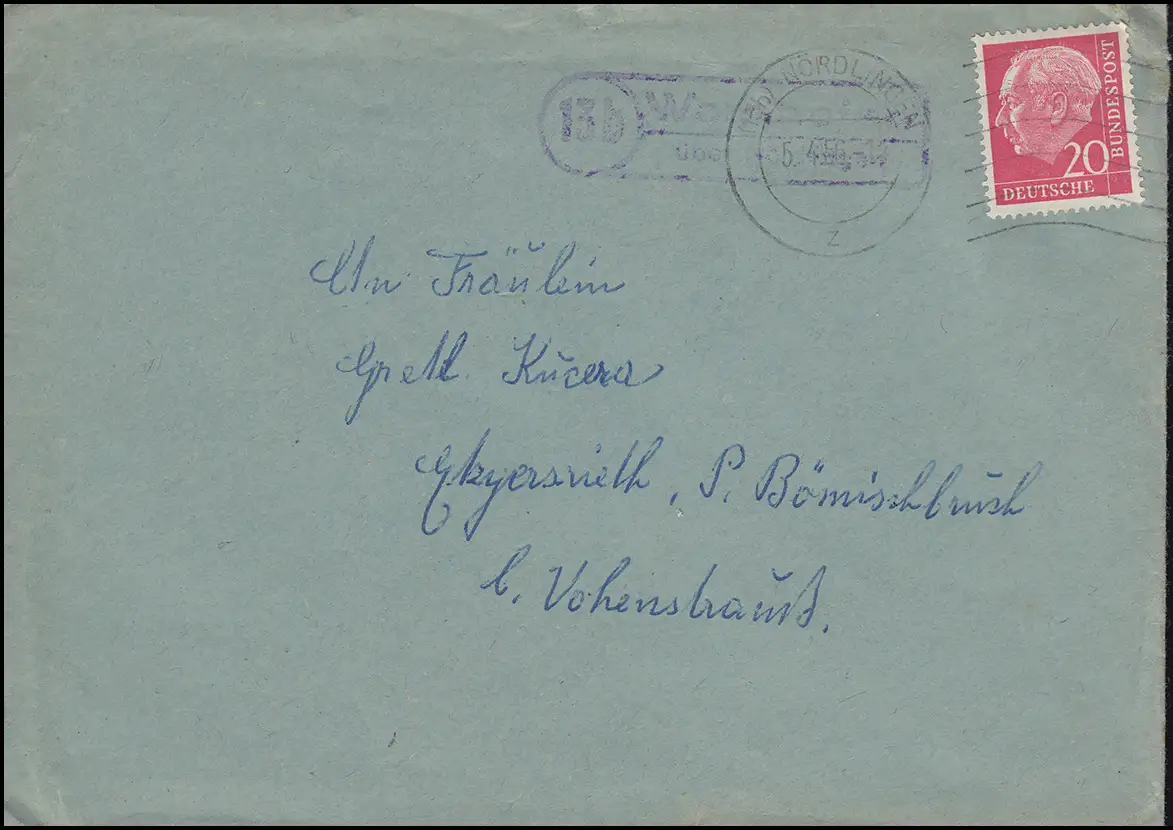 13b
über
(13b) NÖRDLINGEN
5.4.56.-14
z
20
DEUTSCHE
BUNDESPOST
An Fräulein
Gretl. Kučera
P. Bömischbruck
b. Vohenstrauß.